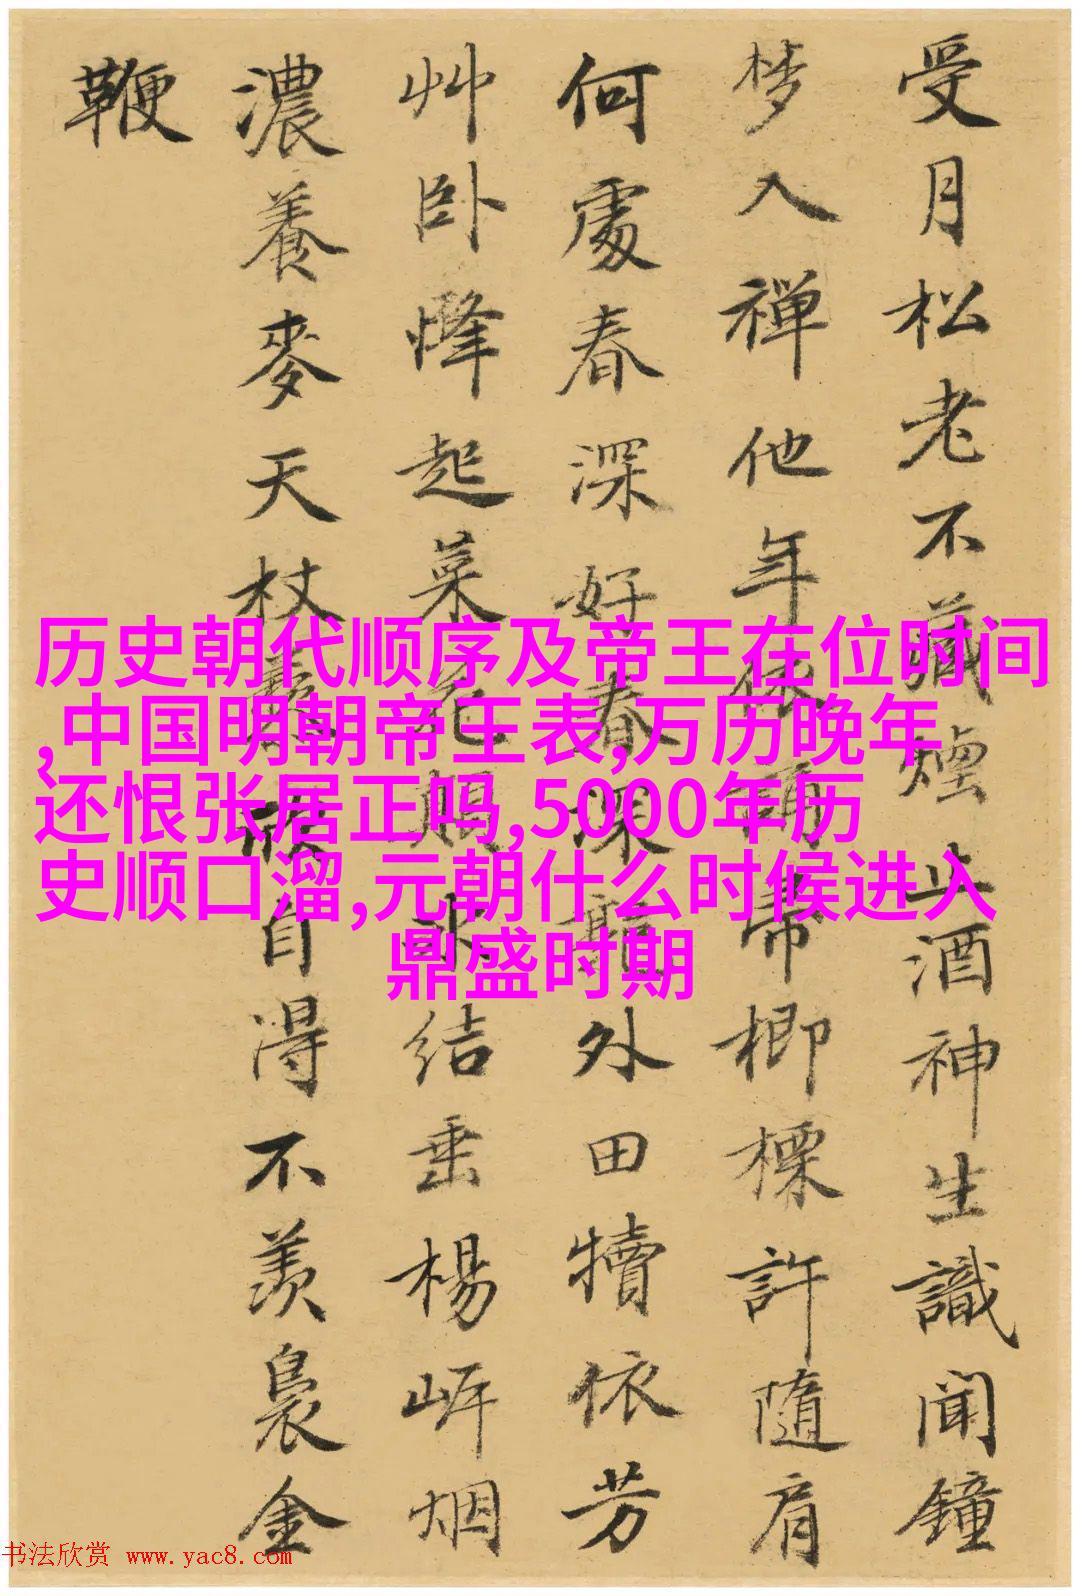 受月松老不藏煙止酒神生識闻鐘
梦入禅他年休稱帝楖標許隨肩
何處春深好春深聽外田犢依芳
艸卧烽起菜花賜水结垂楊岍烟
濃養麥天杖履頗自淂不羡裊金
鞭
历史朝代顺序及帝王在位时间
,中国明朝帝王表,万历晚年
还恨张居正吗,5000年历
史顺口溜,元朝什么时候进入
鼎盛时期
书法欣赏 www.yac8.com